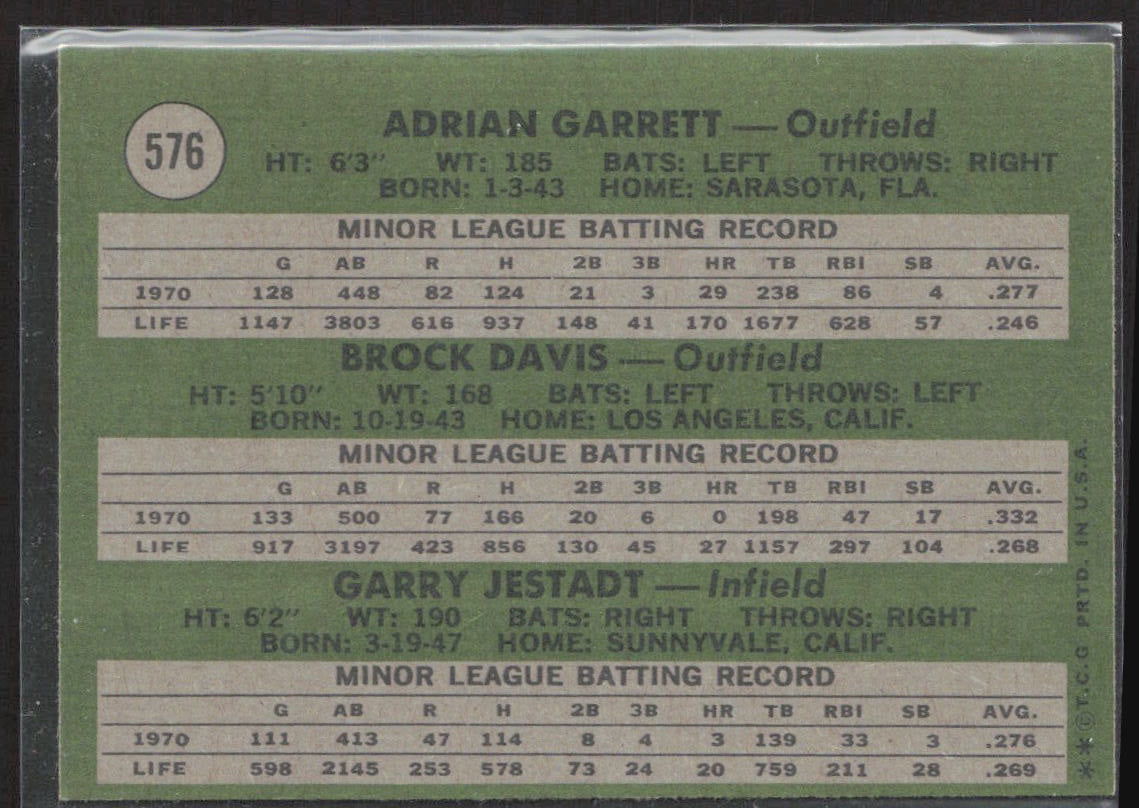 576
ADRIAN GARRETT — Outfield
HT: 6'3" WT: 185 BATS: LEFT THROWS: RIGHT
BORN: 1-3-43 HOME: SARASOTA, FLA.
MINOR LEAGUE BATTING RECORD
G AB R H 2B 3B HR TB RBI SB AVG.
1970 128 448 82 124 21 3 29 238 86 4 .277
LIFE 1147 3803 616 937 148 41 170 1677 628 57 .246
BROCK DAVIS — Outfield
HT: 5'10" WT: 168 BATS: LEFT THROWS: LEFT
BORN: 10-19-43 HOME: LOS ANGELES, CALIF.
MINOR LEAGUE BATTING RECORD
G AB R H 2B 3B HR TB RBI SB AVG.
1970 133 500 77 166 20 6 0 198 47 17 .332
LIFE 917 3197 423 856 130 45 27 1157 297 104 .268
GARRY JESTADT — Infield
HT: 6'2" WT: 190 BATS: RIGHT THROWS: RIGHT
BORN: 3-19-47 HOME: SUNNYVALE, CALIF.
MINOR LEAGUE BATTING RECORD
G AB R H 2B 3B HR TB RBI SB AVG.
1970 111 413 47 114 8 4 3 139 33 3 .276
LIFE 598 2145 253 578 73 24 20 759 211 28 .269
**©T.C.G PRTD. IN U.S.A.